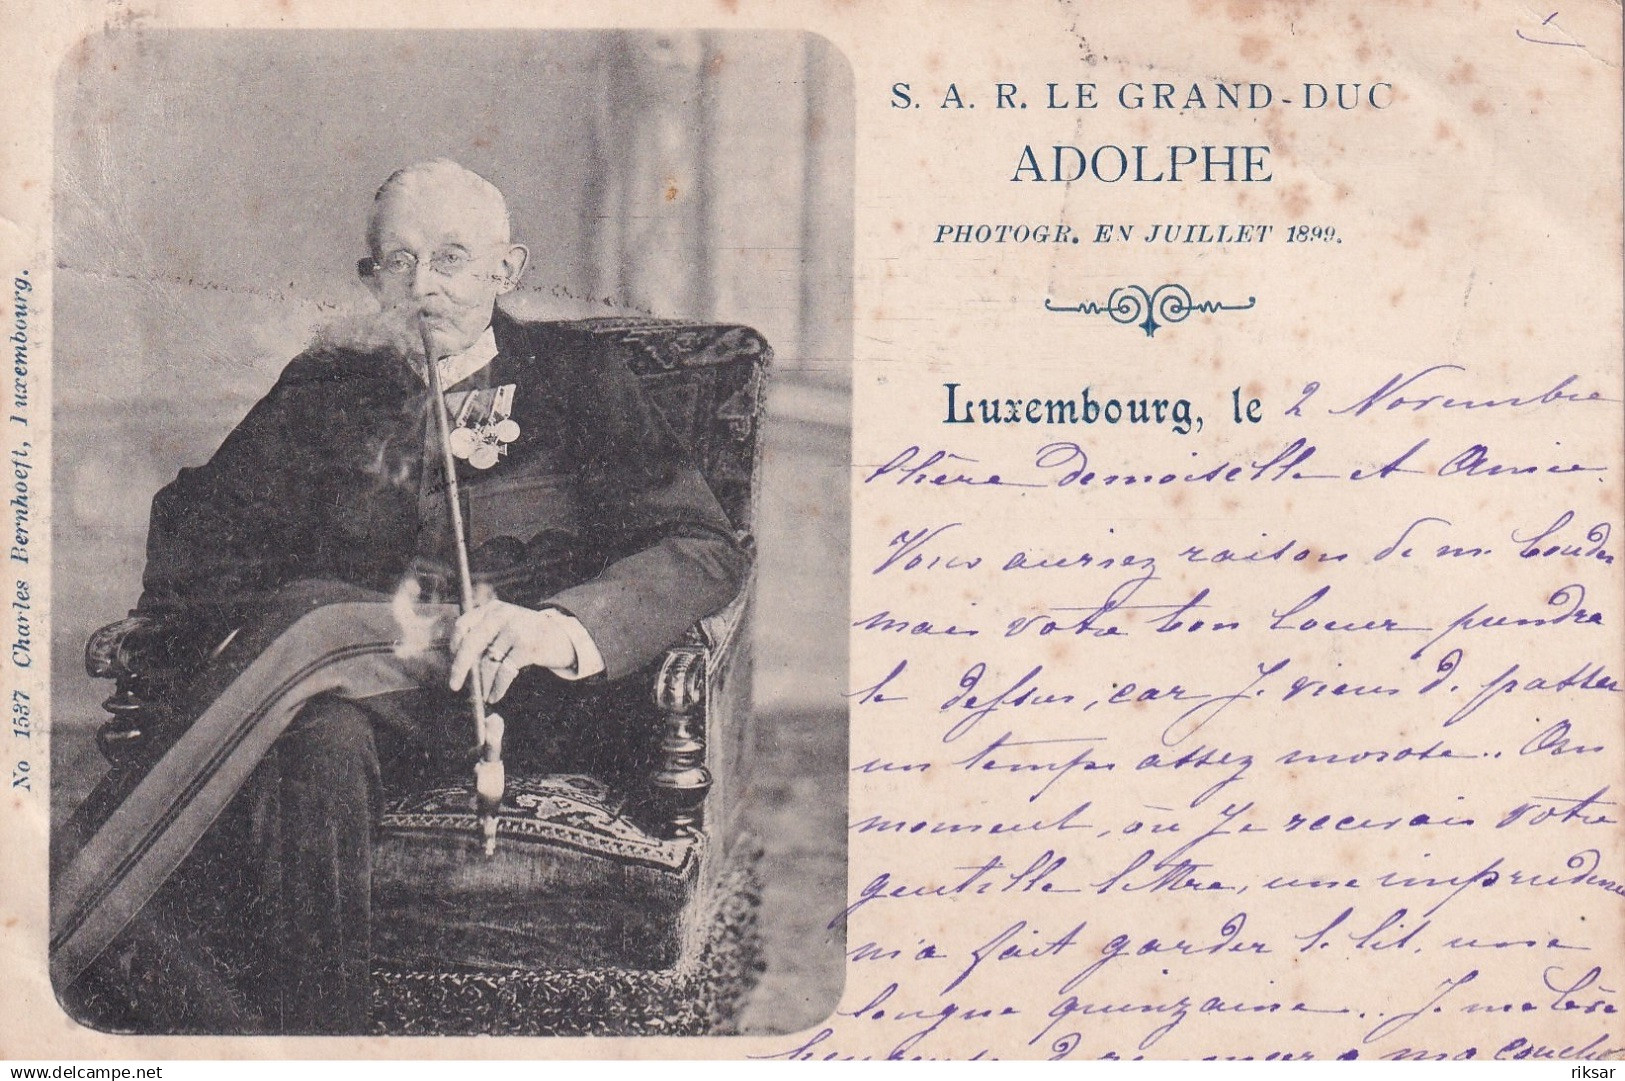 S. A. R. LE GRAND-DUC
ADOLPHE
PHOTOGR. EN JUILLET 1899.
Luxembourg, le 2 Novembre
Chère Demoiselle et Amie.
Vous auriez raison de me bouder
mais votre bon coeur prendra
le dessus, car Je viens de passer
un temps assez morose. Au
moment, où Je recevais votre
gentille lettre, une imprudence
m'a fait garder le lit, une
longue quinzaine.. Je me
No 1537 Charles Bernhoeft, Luxembourg.
riksar